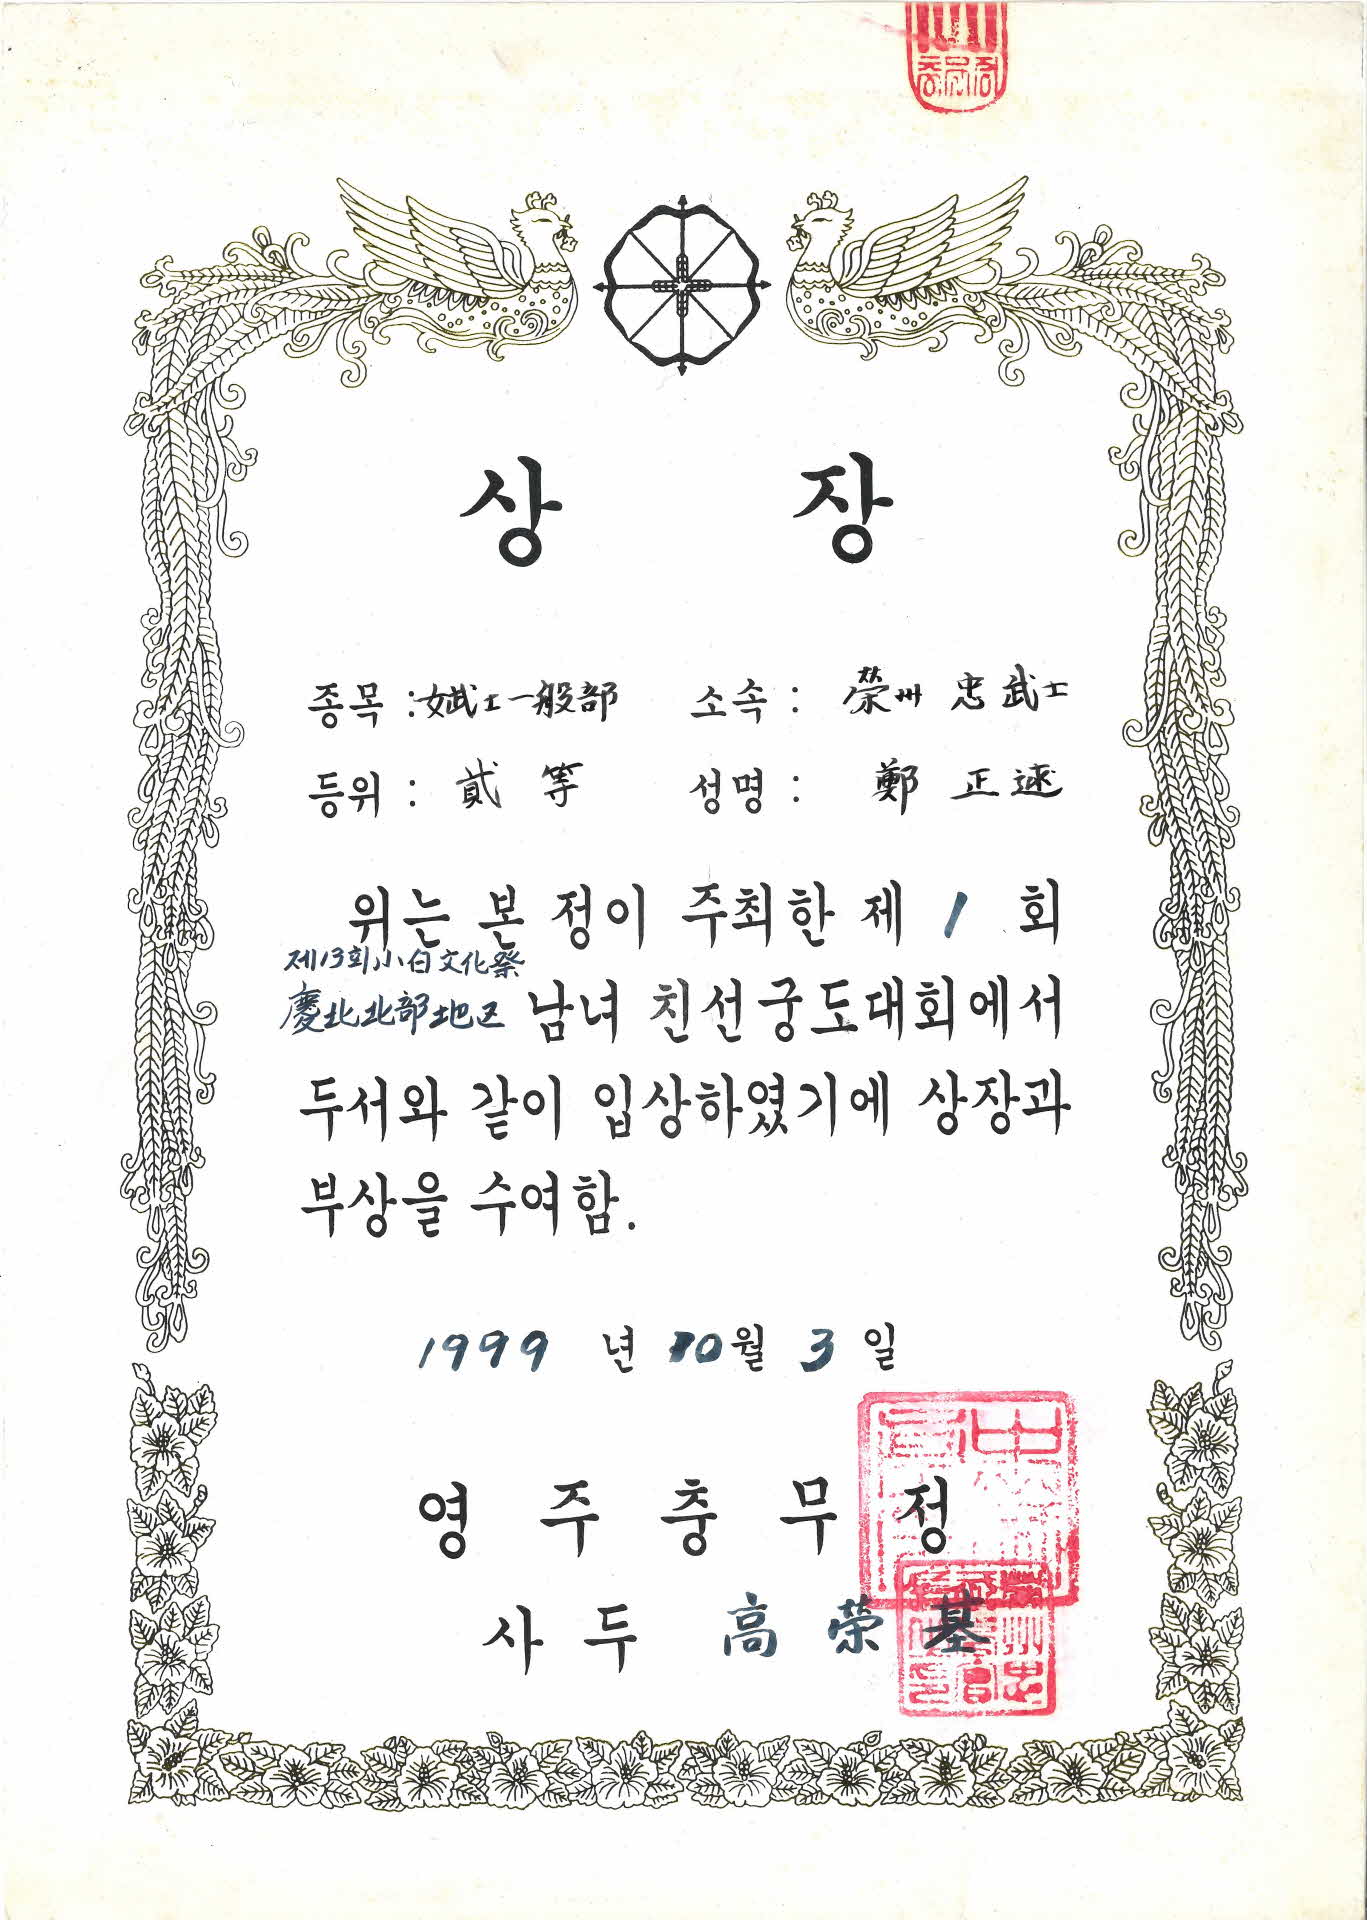 상 장
종목 : 女武士一般部 소속 : 榮州 忠武士
등위 : 貳等 성명 : 鄭正速
위는 본 정이 주최한 제 1 회
제13회 小白文化祭
慶北北部地区 남녀 친선궁도대회에서
두서와 같이 입상하였기에 상장과
부상을 수여함.
1999 년 10월 3 일
영 주 충 무 정
사 두 高 榮 基